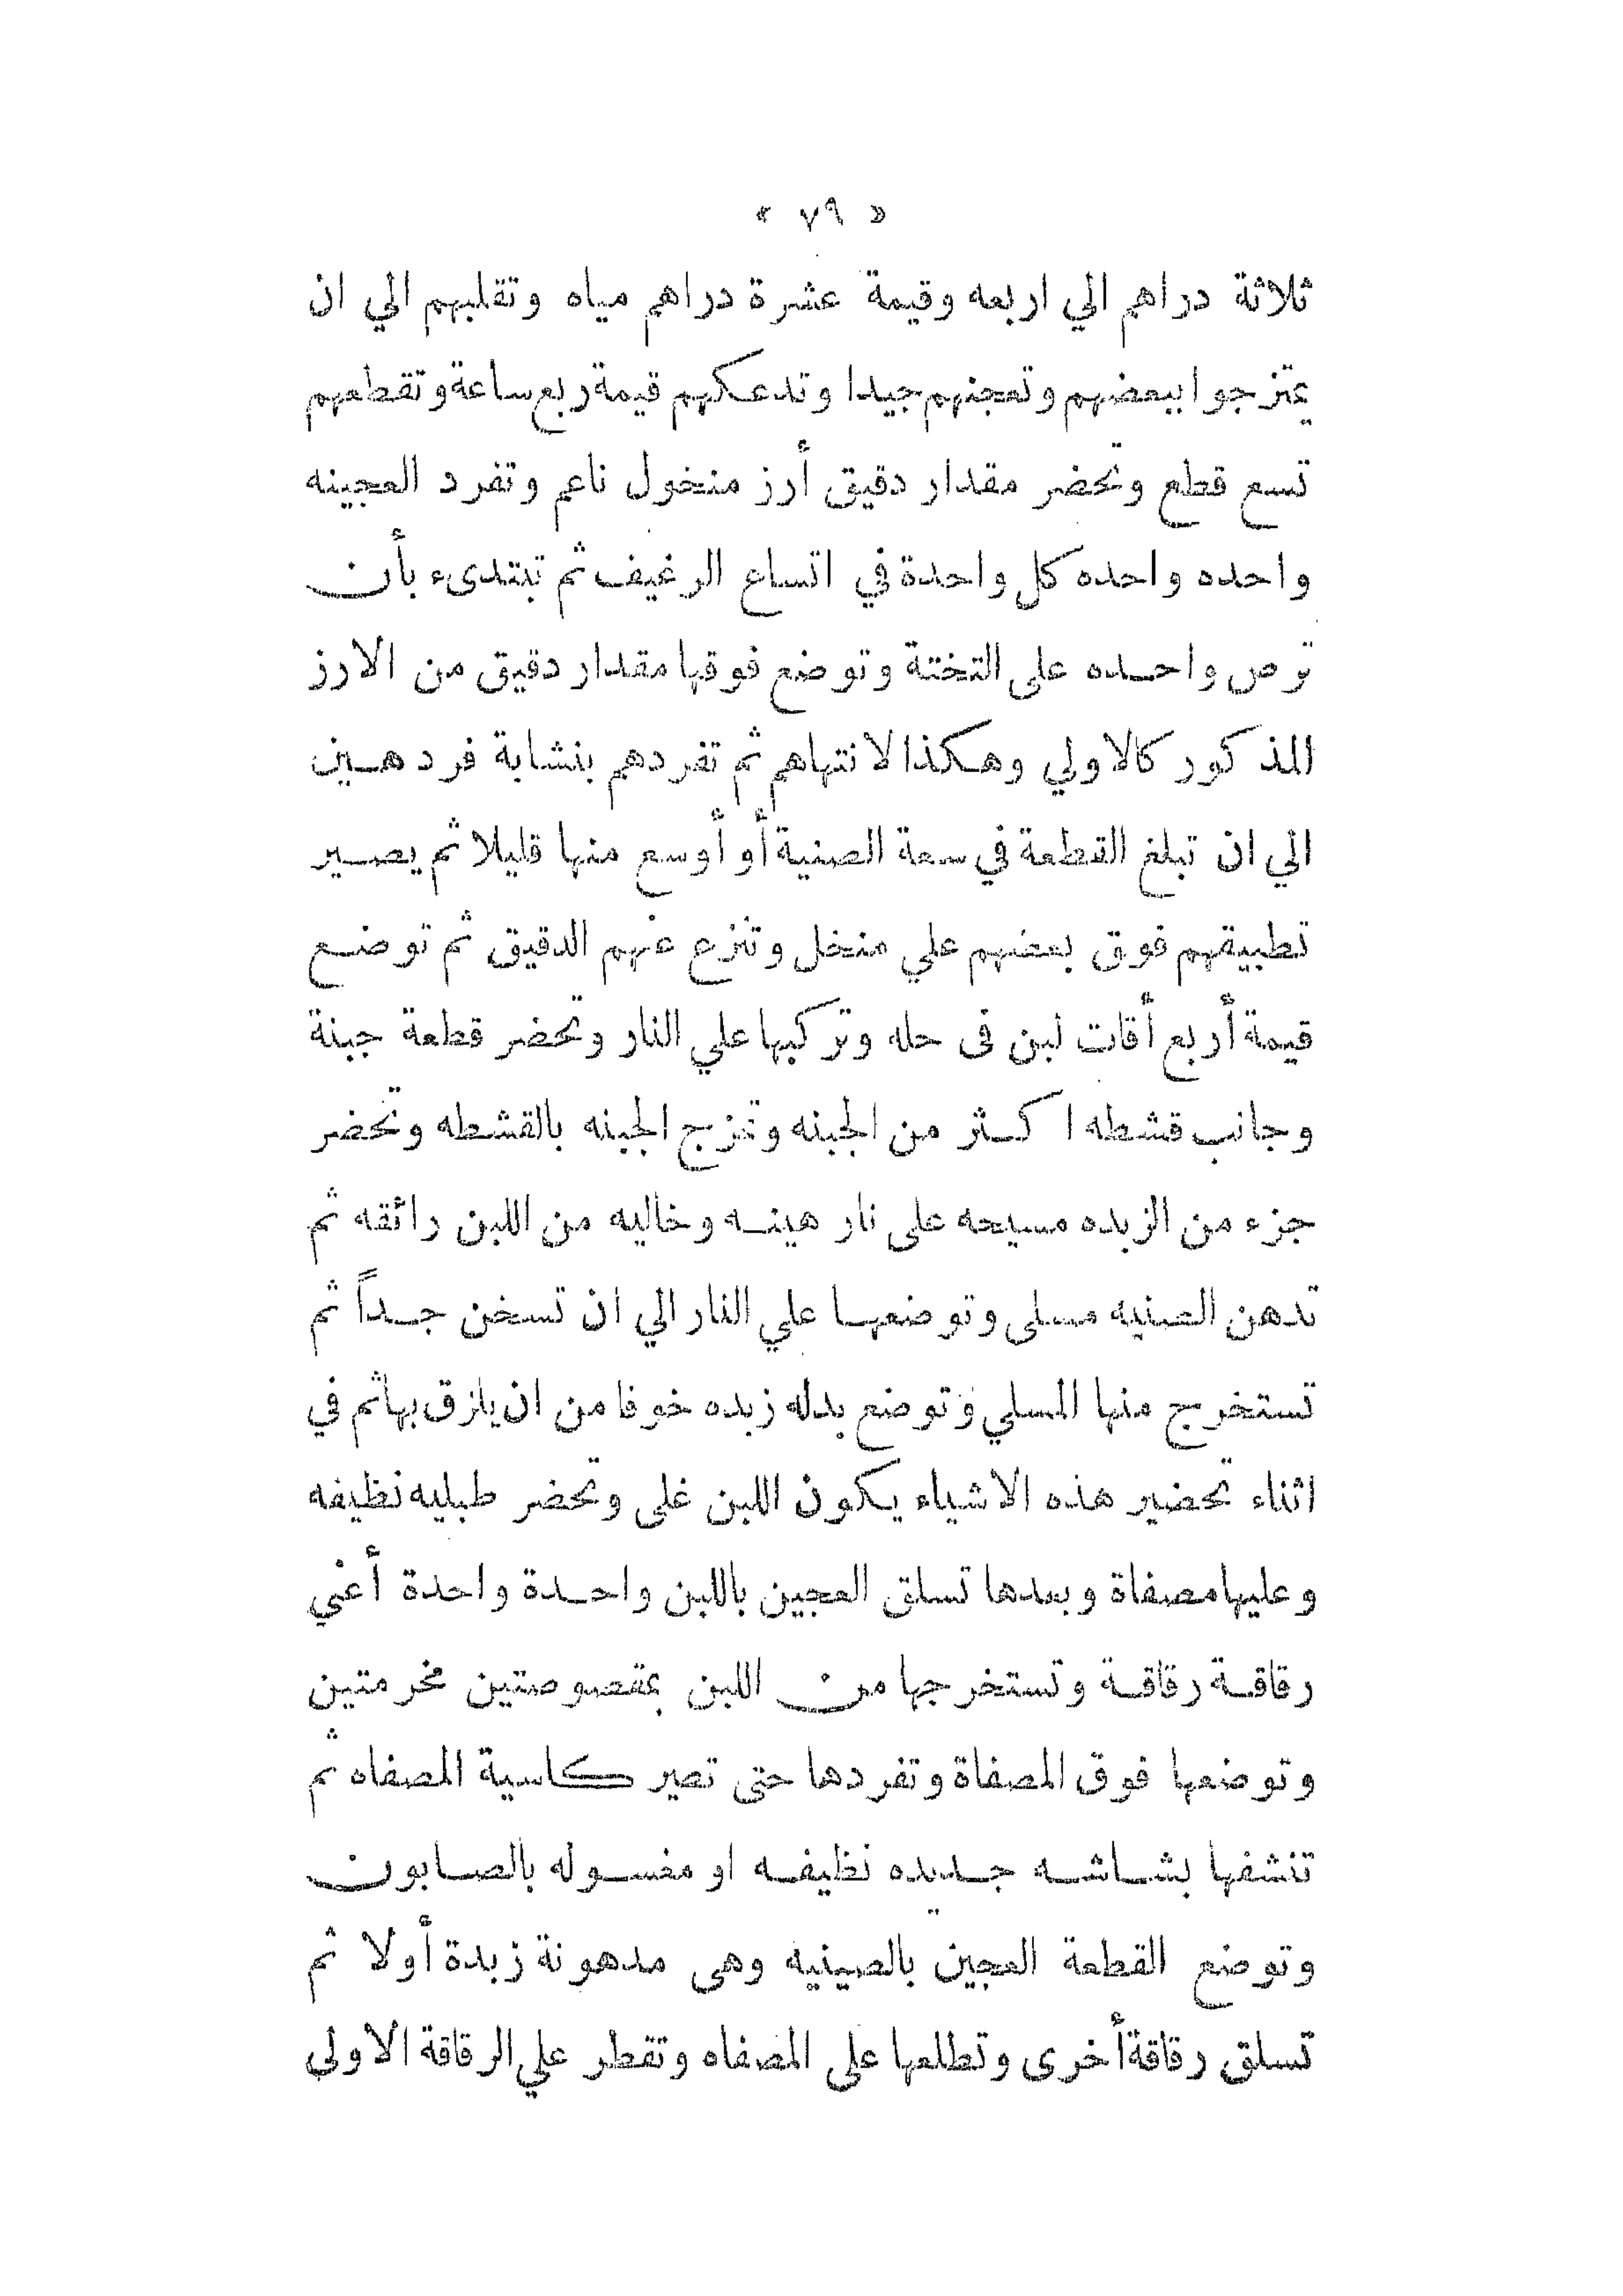 « ٧٩ »
ثلاثة دراهم الي اربعه وقيمة عشرة دراهم مياه وتقلبهم الي ان
يمتزجوا ببعضهم وتعجنهم جيدا وتدعكهم قيمة ربع ساعة وتقطعهم
تسع قطع وتحضر مقدار دقيق أرز منخول ناعم وتفرد العجينه
واحده واحده كل واحدة في اتساع الرغيف ثم تبتدىء بأن
ترص واحده على التختة وتوضع فوقها مقدار دقيق من الارز
المذكور كالاولي وهكذا لانتهاهم ثم تفردهم بنشابة فرد هين
الي ان تبلغ القطعة في سعة الصنية أو أوسع منها قليلا ثم يصير
تطبيقهم فوق بعضهم علي منخل وتنزع عنهم الدقيق ثم توضع
قيمة أربع أقات لبن فى حله وتركبها علي النار وتحضر قطعة جبنة
وجانب قشطه اكثر من الجبنه وتمزج الجبنه بالقشطه وتحضر
جزء من الزبده مسيحه على نار هينه وخاليه من اللبن رائقه ثم
تدهن الصنيه مسلى وتوضعها علي النار الي ان تسخن جداً ثم
تستخرج منها المسلي وتوضع بدله زبده خوفا من ان يلزق بها ثم في
اثناء تحضير هذه الاشياء يكون اللبن غلى وتحضر طبليه نظيفه
وعليها مصفاة وبعدها تسلق العجين باللبن واحدة واحدة أعني
رقاقة رقاقة وتستخرجها من اللبن بمقصوصتين مخرمتين
وتوضعها فوق المصفاة وتفردها حتى تصير كاسية المصفاه ثم
تنشفها بشاشه جديده نظيفه او مغسوله بالصابون
وتوضع القطعة العجين بالصينيه وهى مدهونة زبدة أولا ثم
تسلق رقاقة أخرى وتطلعها على المصفاه وتقطر علي الرقاقة الاولي